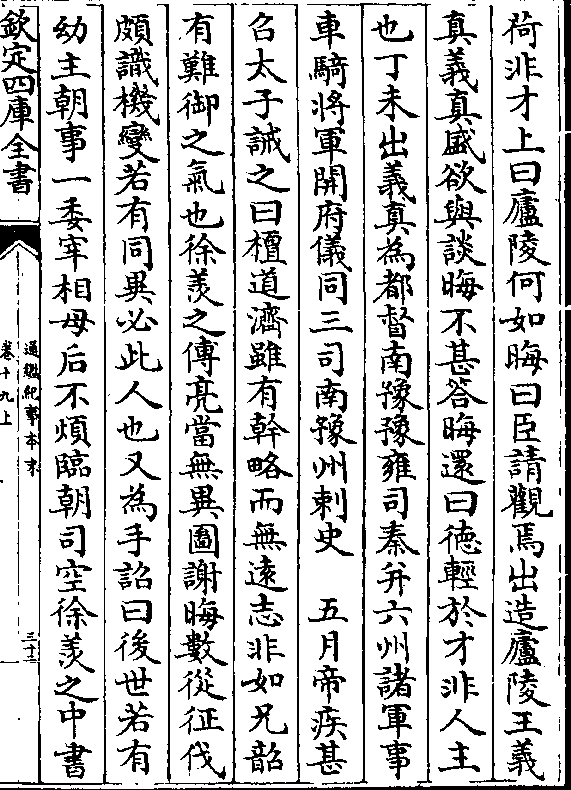 荷非才上曰廬陵何如晦曰臣請觀焉出造廬陵王義
真義真盛欲與談晦不甚答晦還曰徳輕於才非人主
也丁未出義真為都督南豫豫雍司秦并六州諸軍事
車騎將軍開府儀同三司南豫州刺史　五月帝疾甚
召太子誡之曰檀道濟雖有幹略而無遠志非如兄韶
有難御之氣也徐羨之傅亮當無異圖謝晦數從征伐
頗識機變若有同異必此人也又為手詔曰後世若有
幼主朝事一委宰相母后不煩臨朝司空徐羨之中書
欽定四庫全書
通鑑紀事本末
卷十九上
三十二